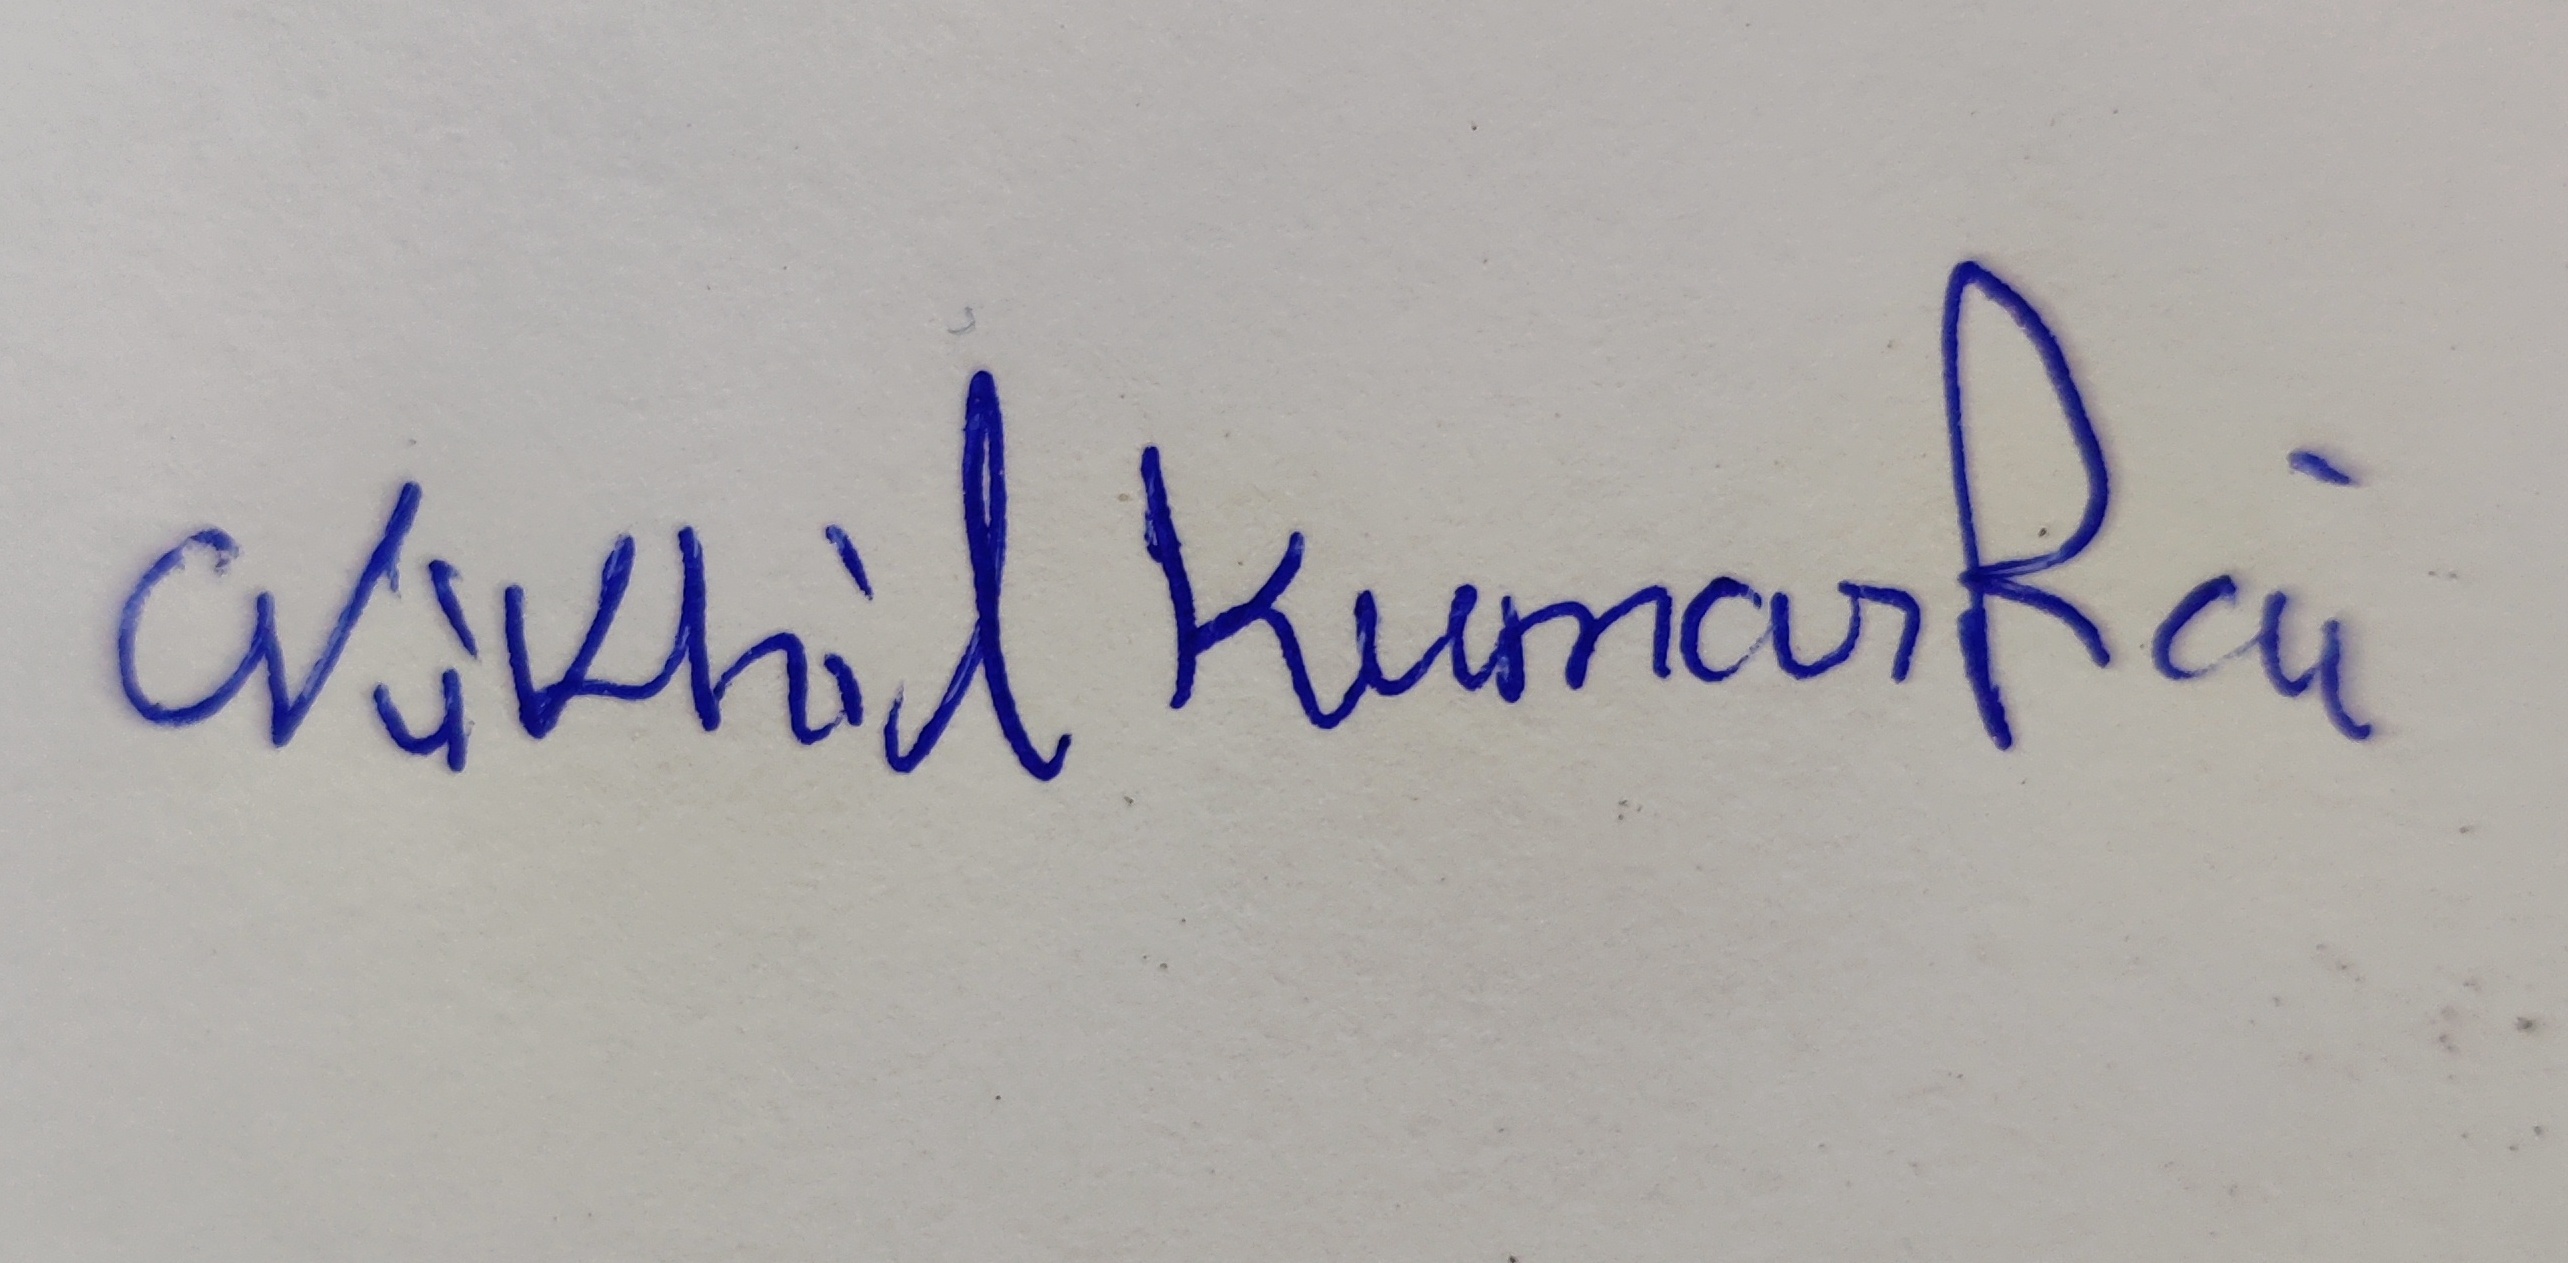 Nikhil Kumar Rai